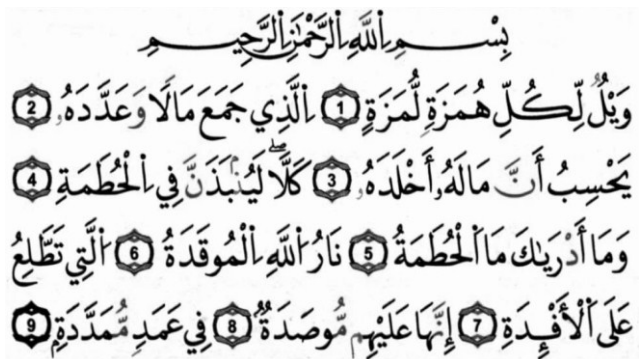 بِسْمِ اِللَّهِ اِلرَّحْمَٰنِ اِلرَّحِيمِ
وَيْلٌ لِّكُلِّ هُمَزَةٍ لُّمَزَةٍ 1 اِلَّذِي جَمَعَ مَالًا وَعَدَّدَهُۥ 2
يَحْسِبُ أَنَّ مَالَهُۥ أَخْلَدَهُۥ 3 كَلَّاۖ لَيُنۢبَذَنَّ فِي اِلْحُطَمَةِ 4
وَمَا أَدْرَىٰكَ مَا اَلْحُطَمَةُ 5 نَارُ اُللَّهِ اِلْمُوقَدَةُ 6 اِلَّتِي تَطَّلِعُ
عَلَى اَلْأَفْـِٔدَةِ 7 إِنَّهَا عَلَيْهِم مُّوصَدَةٌ 8 فِي عَمَدٍ مُّمَدَّدَةٍ 9